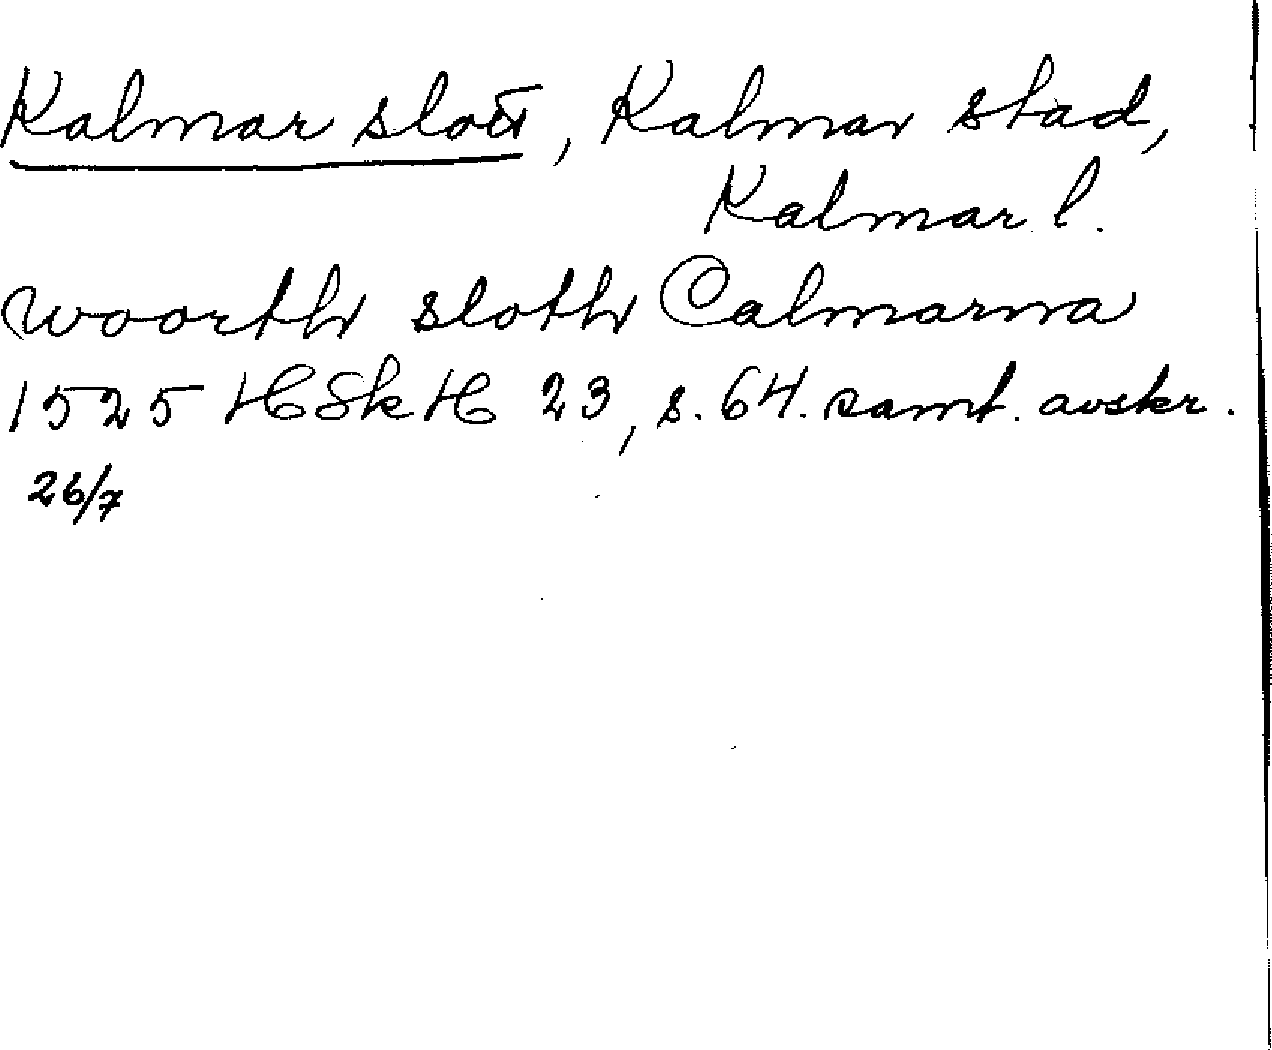 Kalmar slott, Kalmar stad,
Kalmar l.
woorth sloth Calmarna
1525 HSkH 23, s. 64. samt. avskr.
26/7